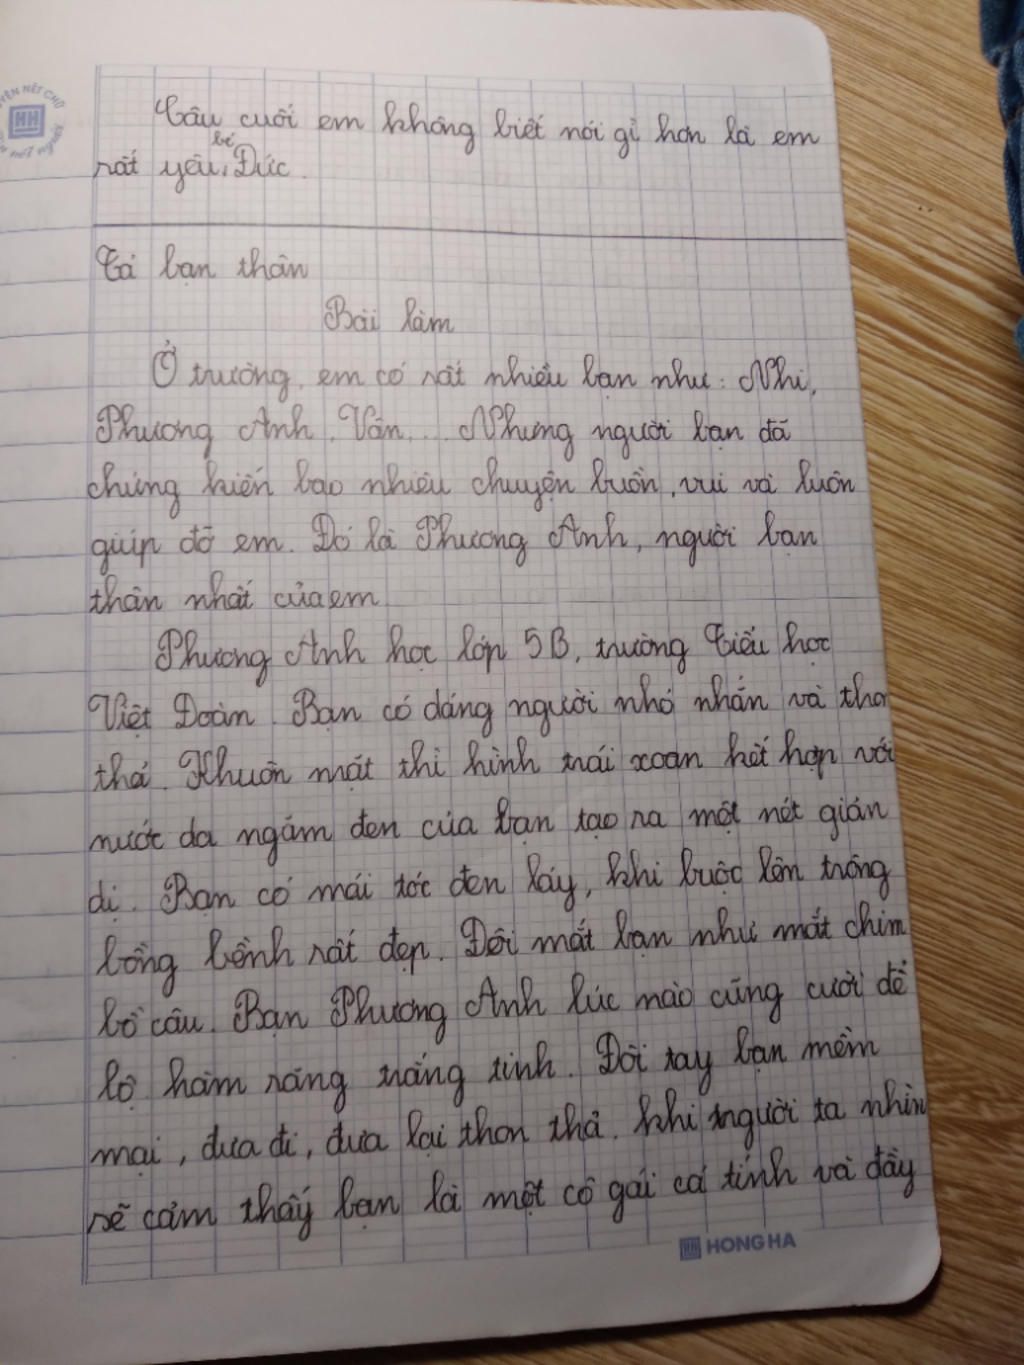 Câu cuối em không biết nói gì hơn là em
rất yêu bé Đức.
Tả bạn thân
Bài làm
Ở trường, em có rất nhiều bạn như: Nhi,
Phương Anh, Vân,... Nhưng người bạn đã
chứng kiến bao nhiêu chuyện buồn, vui và luôn
giúp đỡ em. Đó là Phương Anh, người bạn
thân nhất của em
Phương Anh học lớp 5B, trường Tiểu học
Việt Đoàn. Bạn có dáng người nhỏ nhắn và thon
thả. Khuôn mặt thì hình trái xoan kết hợp với
nước da ngăm đen của bạn tạo ra một nét giản
dị. Bạn có mái tóc đen láy, khi buộc lên trông
bồng bềnh rất đẹp. Đôi mắt bạn như mắt chim
bồ câu. Bạn Phương Anh lúc nào cũng cười để
lộ hàm răng trắng tinh. Đôi tay bạn mềm
mại, đưa đi, đưa lại thon thả. Khi người ta nhìn
sẽ cảm thấy bạn là một cô gái cá tính và đầy
HH HONG HA